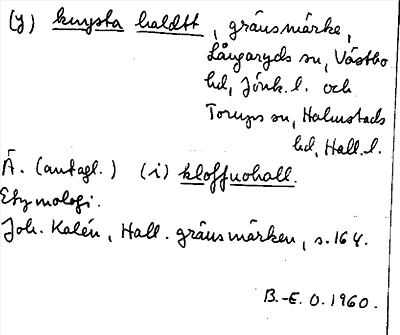 (y) knysta haldtt, gränsmärke,
Långaryds sn, Västbo
hd, Jönk. l. och
Torups sn, Halmstads
hd, Hall. l.
Ä. (antagl.) (i) kloffuohall.
Etymologi.
Joh. Kalén, Hall. gränsmärken, s. 164.
B.-E. O. 1960.